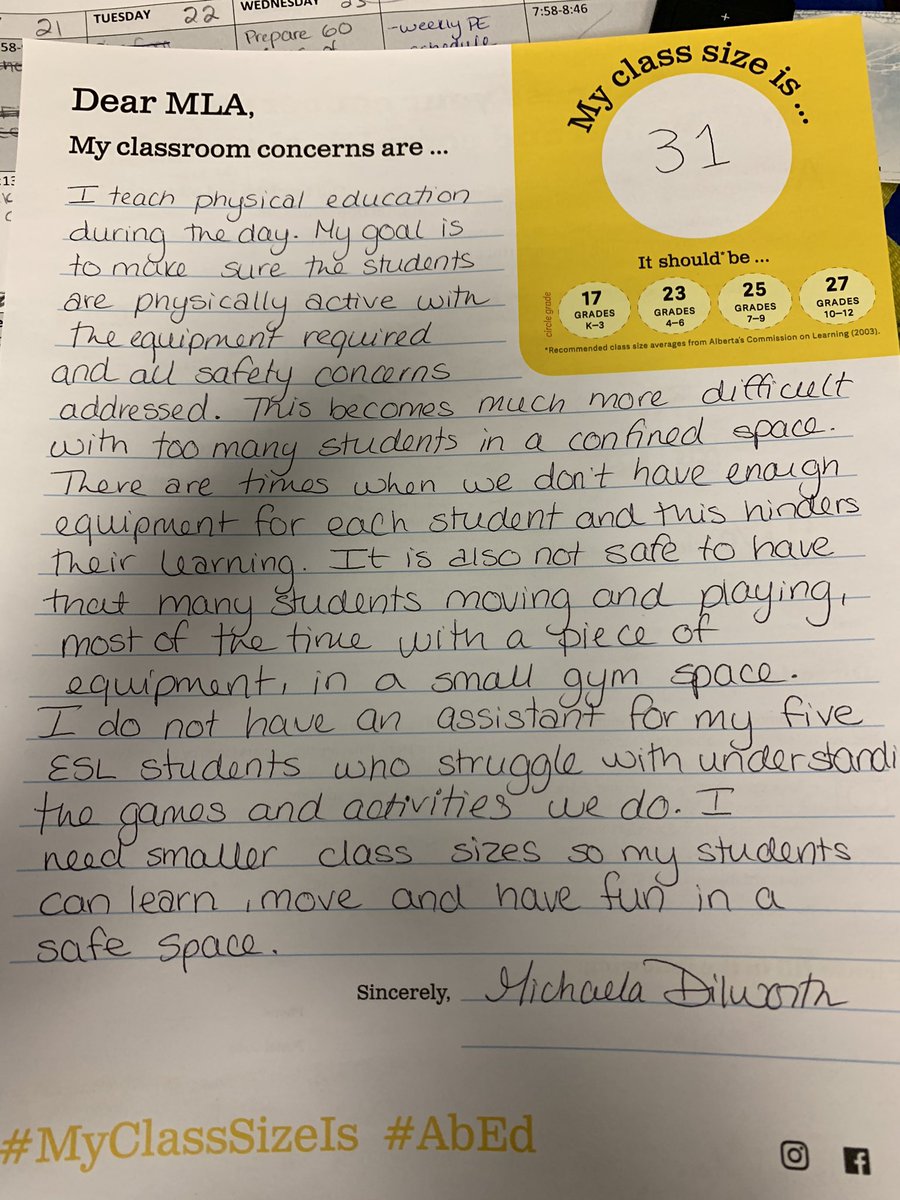 21
TUESDAY 22
WEDNESDAY
Prepare 60
-weekly PE
schedule
7:58-8:46
Dear MLA,
My classroom concerns are ...
My class size is ...
31
It should* be ...
circle grade
17 GRADES K–3
23 GRADES 4–6
25 GRADES 7–9
27 GRADES 10–12
*Recommended class size averages from Alberta's Commission on Learning (2003).
I teach physical education
during the day. My goal is
to make sure the students
are physically active with
the equipment required
and all safety concerns
addressed. This becomes much more difficult
with too many students in a confined space.
There are times when we don't have enough
equipment for each student and this hinders
their learning. It is also not safe to have
that many students moving and playing,
most of the time with a piece of
equipment, in a small gym space.
I do not have an assistant for my five
ESL students who struggle with understandi
the games and activities we do. I
need smaller class sizes so my students
can learn, move and have fun in a
safe space.
Sincerely, Michaela Dilworth
#MyClassSizeIs #AbEd